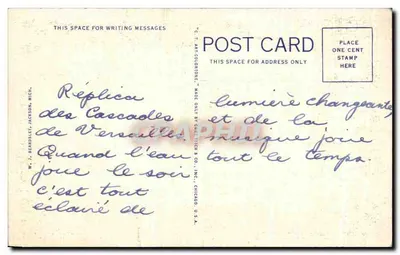 THIS SPACE FOR WRITING MESSAGES
Réplica
des Cascades
de Versailles.
Quand l'eau
joue le soir
c'est tout
éclairé de
POST CARD
THIS SPACE FOR ADDRESS ONLY
PLACE
ONE CENT
STAMP
HERE
lumière changeante,
et de la
musique joue
tout le temps.
JACKSON, MICH.
CHICAGO, U.S.A.